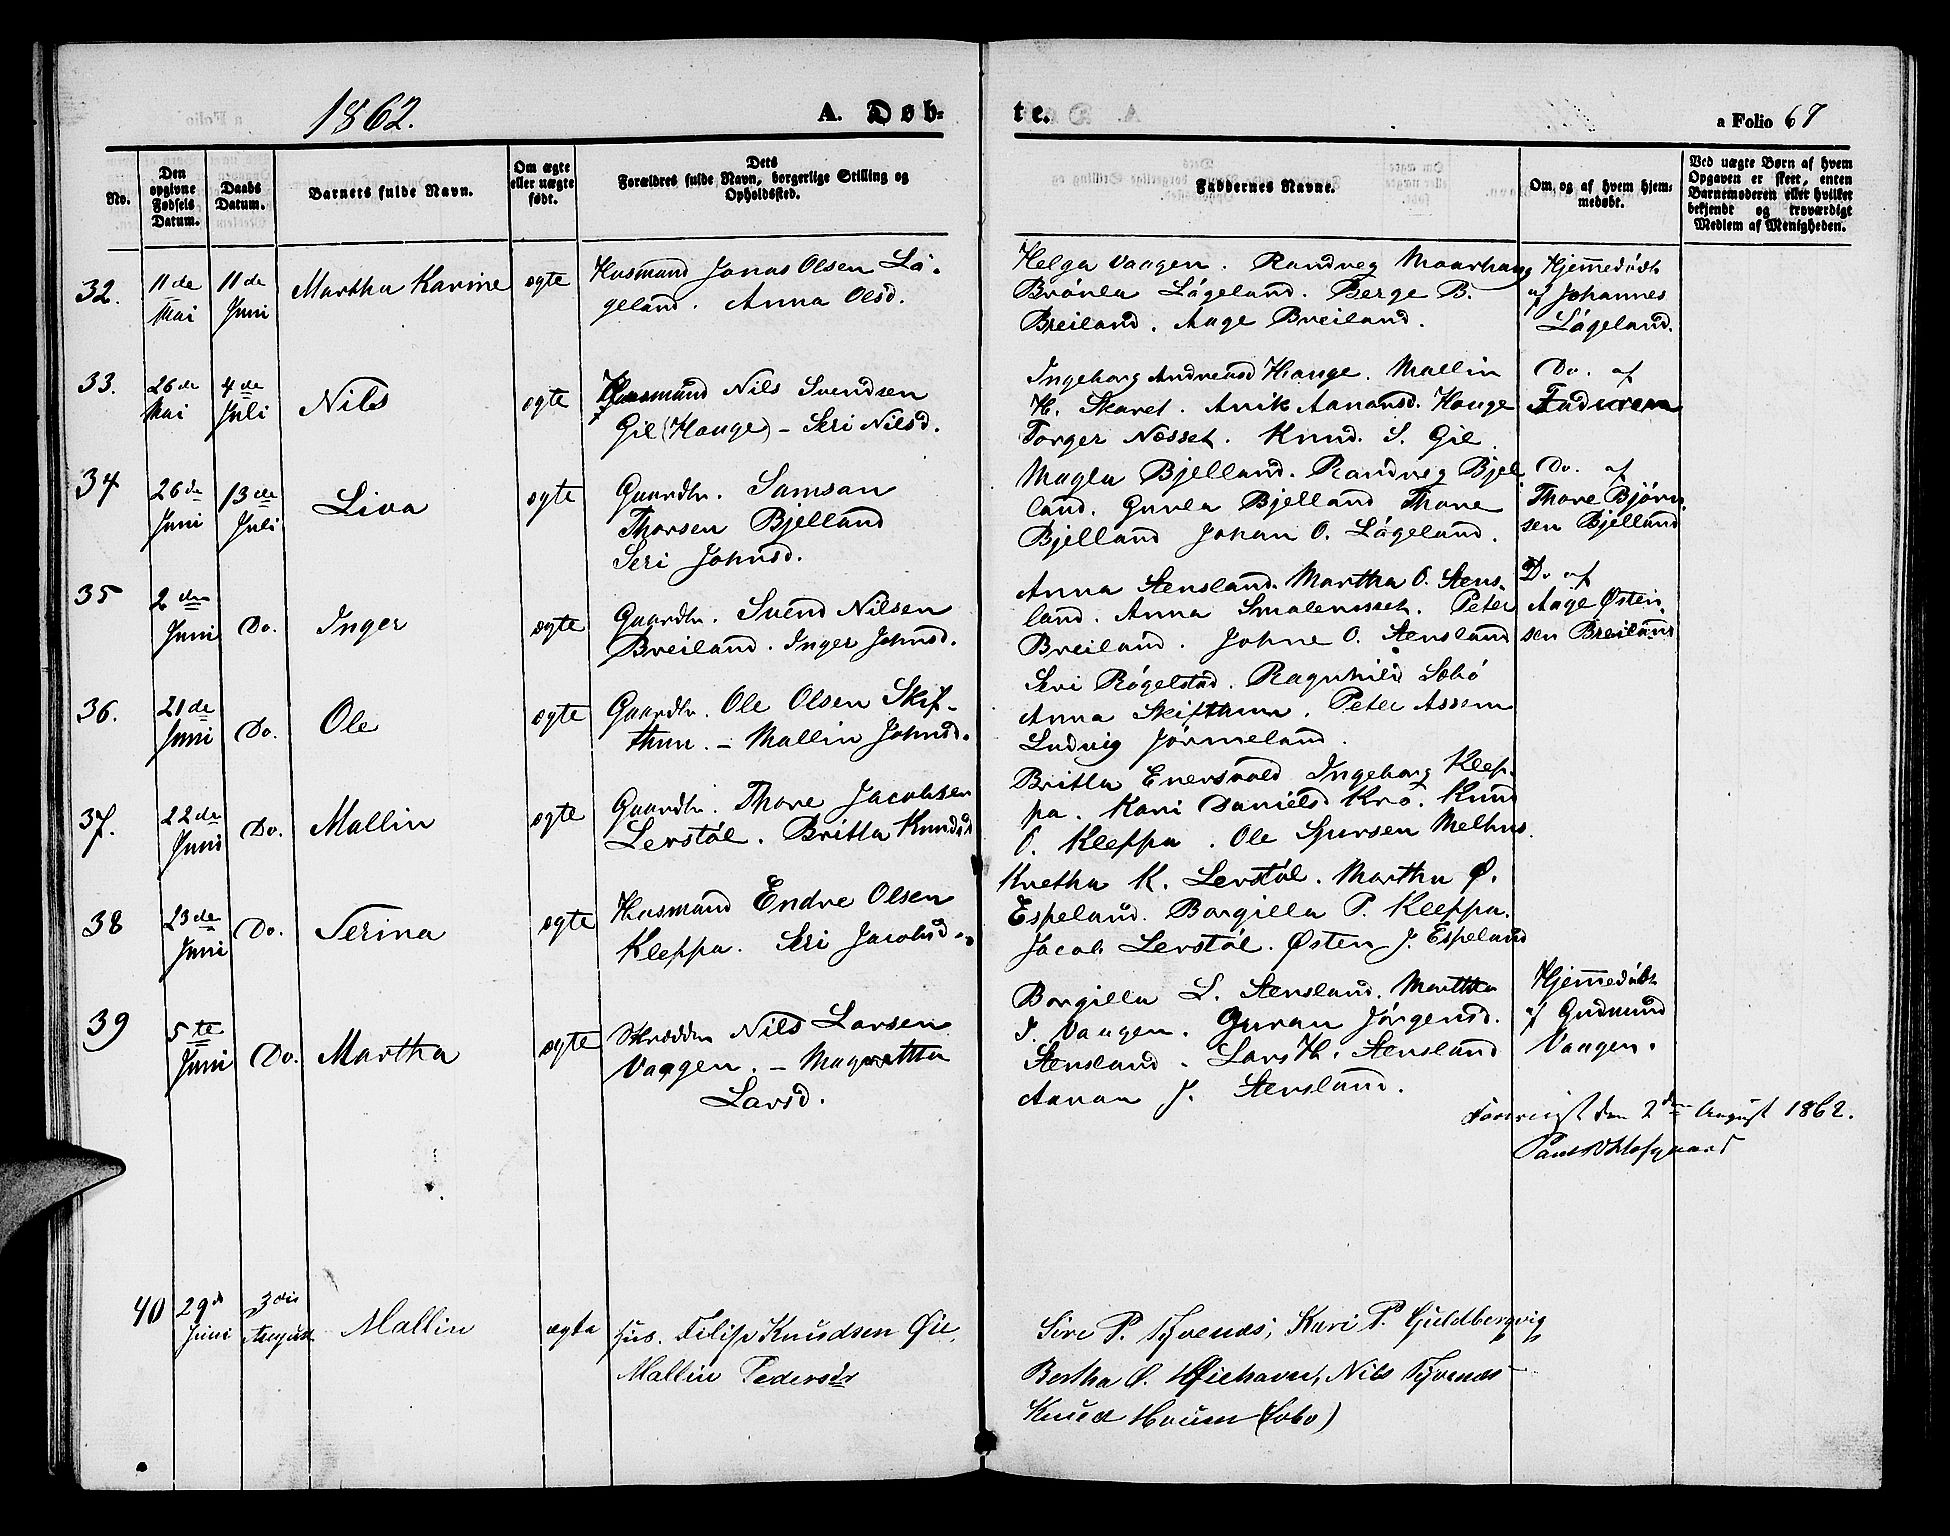 1862.
A. Døb-
te.
a Folio 67
No.
Den opgivne Fødsels Datum.
Daabs Datum.
Barnets fulde Navn.
Om ægte eller uægte født.
Dets Forældres fulde Navn, borgerlige Stilling og Opholdssted.
Faddernes Navne.
Om, og af hvem hjemmedøbt.
Ved uægte Børn af hvem Opgaven er skeet, enten Barnemoderen eller hvilket bekjendt og troværdigt Medlem af Menigheden.
32. 11de Mai 11de Juni Martha Karine ægte
Husmand Jonas Olsen Lå-
geland. Anna Olsd.
Helga Vaagen. Randveg Maarhaug
Brónla Lågeland. Berge B.
Breiland. Aage Breiland.
Hjemmedøbt
af Johannes
Lågeland.
33. 26de Mai 4de Juli Nils ægte
Husmand Nils Svendsen
Gil (Hauge) - Seri Nilsd.
Ingeborg Andreasd Hauge. Mallin
H. Skaret. Anik Aanansd. Hauge
Torger Nesset. Knud. S. Gil.
Do. af
34 26de Juni 13de Juli Liva ægte
Gaardbr. Samson
Thorsen Bjelland
Seri Johnsd.
Magla Bjelland. Randveg Bjel
land. Gunla Bjelland Thore
Bjelland Johan O. Lågeland.
Do. af
Thore Bjørn
sen Bjelland
35 2den Juni Do. Inger ægte
Gaardbr. Svend Nilsen
Breiland. Inger Johnsd.
Anna Stensland. Martha O. Stens-
land. Anna Smalenesset. Peter
Breiland. Johne O. Stensland
Do af
Aage Østen-
sen Breiland
36. 21de Juni Do. Ole ægte
Gaardbr. Ole Olsen Skif-
thun. - Mallin Johnsd.
Seri Rógelstad. Ragnhild Sebó
Anna Skifthun. Peter Assem
Ludvig Jórmeland.
37. 22de Juni Do. Mallin ægte
Gaardbr. Thore Jacobsen
Lerstól. Britta Knudsd
Britta Enersvold Ingeborg Klep-
pa. Kari Danielsd Kro. Knud
O. Kleppa. Ole Sjursen Melhus.
38 23de Juni Do. Serina ægte
Husmand Endre Olsen
Kleppa. Seri Jacobsd.
Kretha K. Lerstól. Martha Ø.
Espeland. Borgilla P. Kleppa.
Jacob Lerstól. Østen J. Espeland
39 5te Juni Do. Martha ægte
Skrædder Nils Larsen
Vaagen. - Magretha
Larsd.
Borgilla L. Stensland. Martha
I. Vaagen. Guran Jórgensd.
Stensland. Lars H. Stensland
Aanan J. Stensland.
Hjemmedøbt
af Gudmund
Vaagen.
den 2den August 1862.
40 29de Juni 3die August Mallin ægte
Hus. Filip Knudsen Øie,
Mallin Pedersdr
Sire P. Tyvenæs, Kari P. Guldbergvig
Bertha O. Høiehaven, Nils Tyvenæs
Knud Hauen (Sebø)